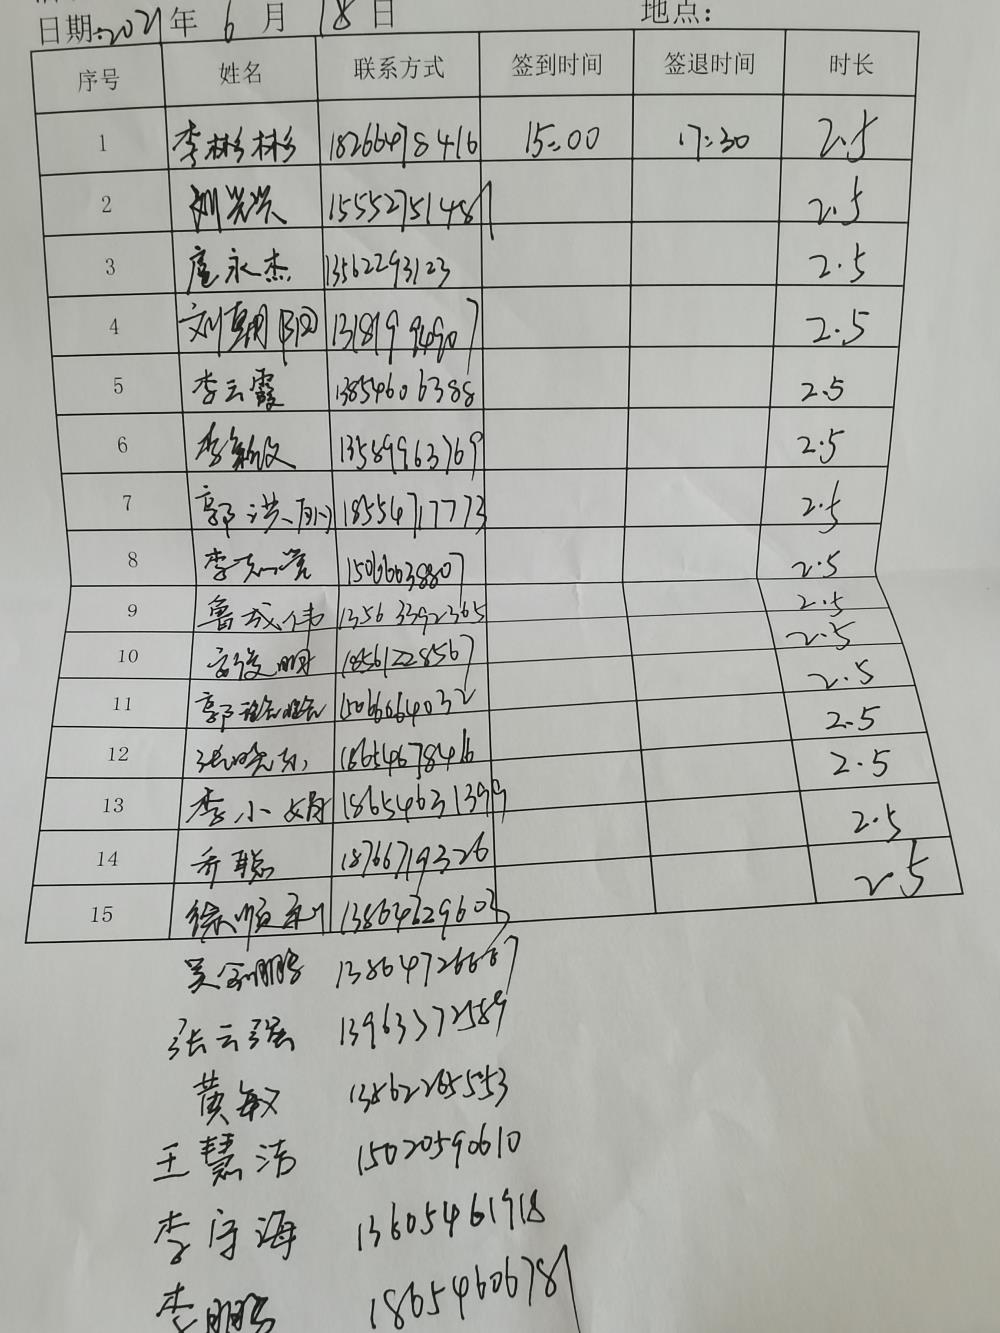 日期:2021年 6 月 18 日 地点:
序号 姓名 联系方式 签到时间 签退时间 时长
1 李彬彬 18266478416 15:00 17:30 2.5
2 15552751481 2.5
3 扈永杰 13562293123 2.5
4 13181994907 2.5
5 李云霞 13854606388 2.5
6 李敏 13589963769 2.5
7 郭洪 18554717773 2.5
8 李 15066638807 2.5
9 鲁成伟 13563392365 2.5
10 明 18561228567 2.5
11 郭 15066064032 2.5
12 张晓东 18654678416 2.5
13 李小娟 18654631399 2.5
14 乔聪 18766719326 2.5
15 徐顺利 13864629603 2.5
吴金鹏 13864726667
张云强 13963372589
黄敏 13562265553
王慧洁 15020590610
李守海 13605461918
李鹏 18654606781